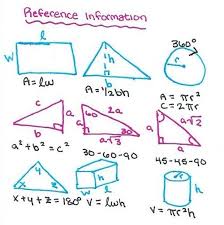 Reference Information
l
w
A = lw
h
b
A = 1/2 bh
360°
r
A = πr²
C = 2πr
c
a
b
a² + b² = c²
60
2a
a
30
a√3
30-60-90
a√2
a
a
45-45-90
y
x
z
x + y + z = 180°
h
w
l
V = lwh
r
h
V = πr²h